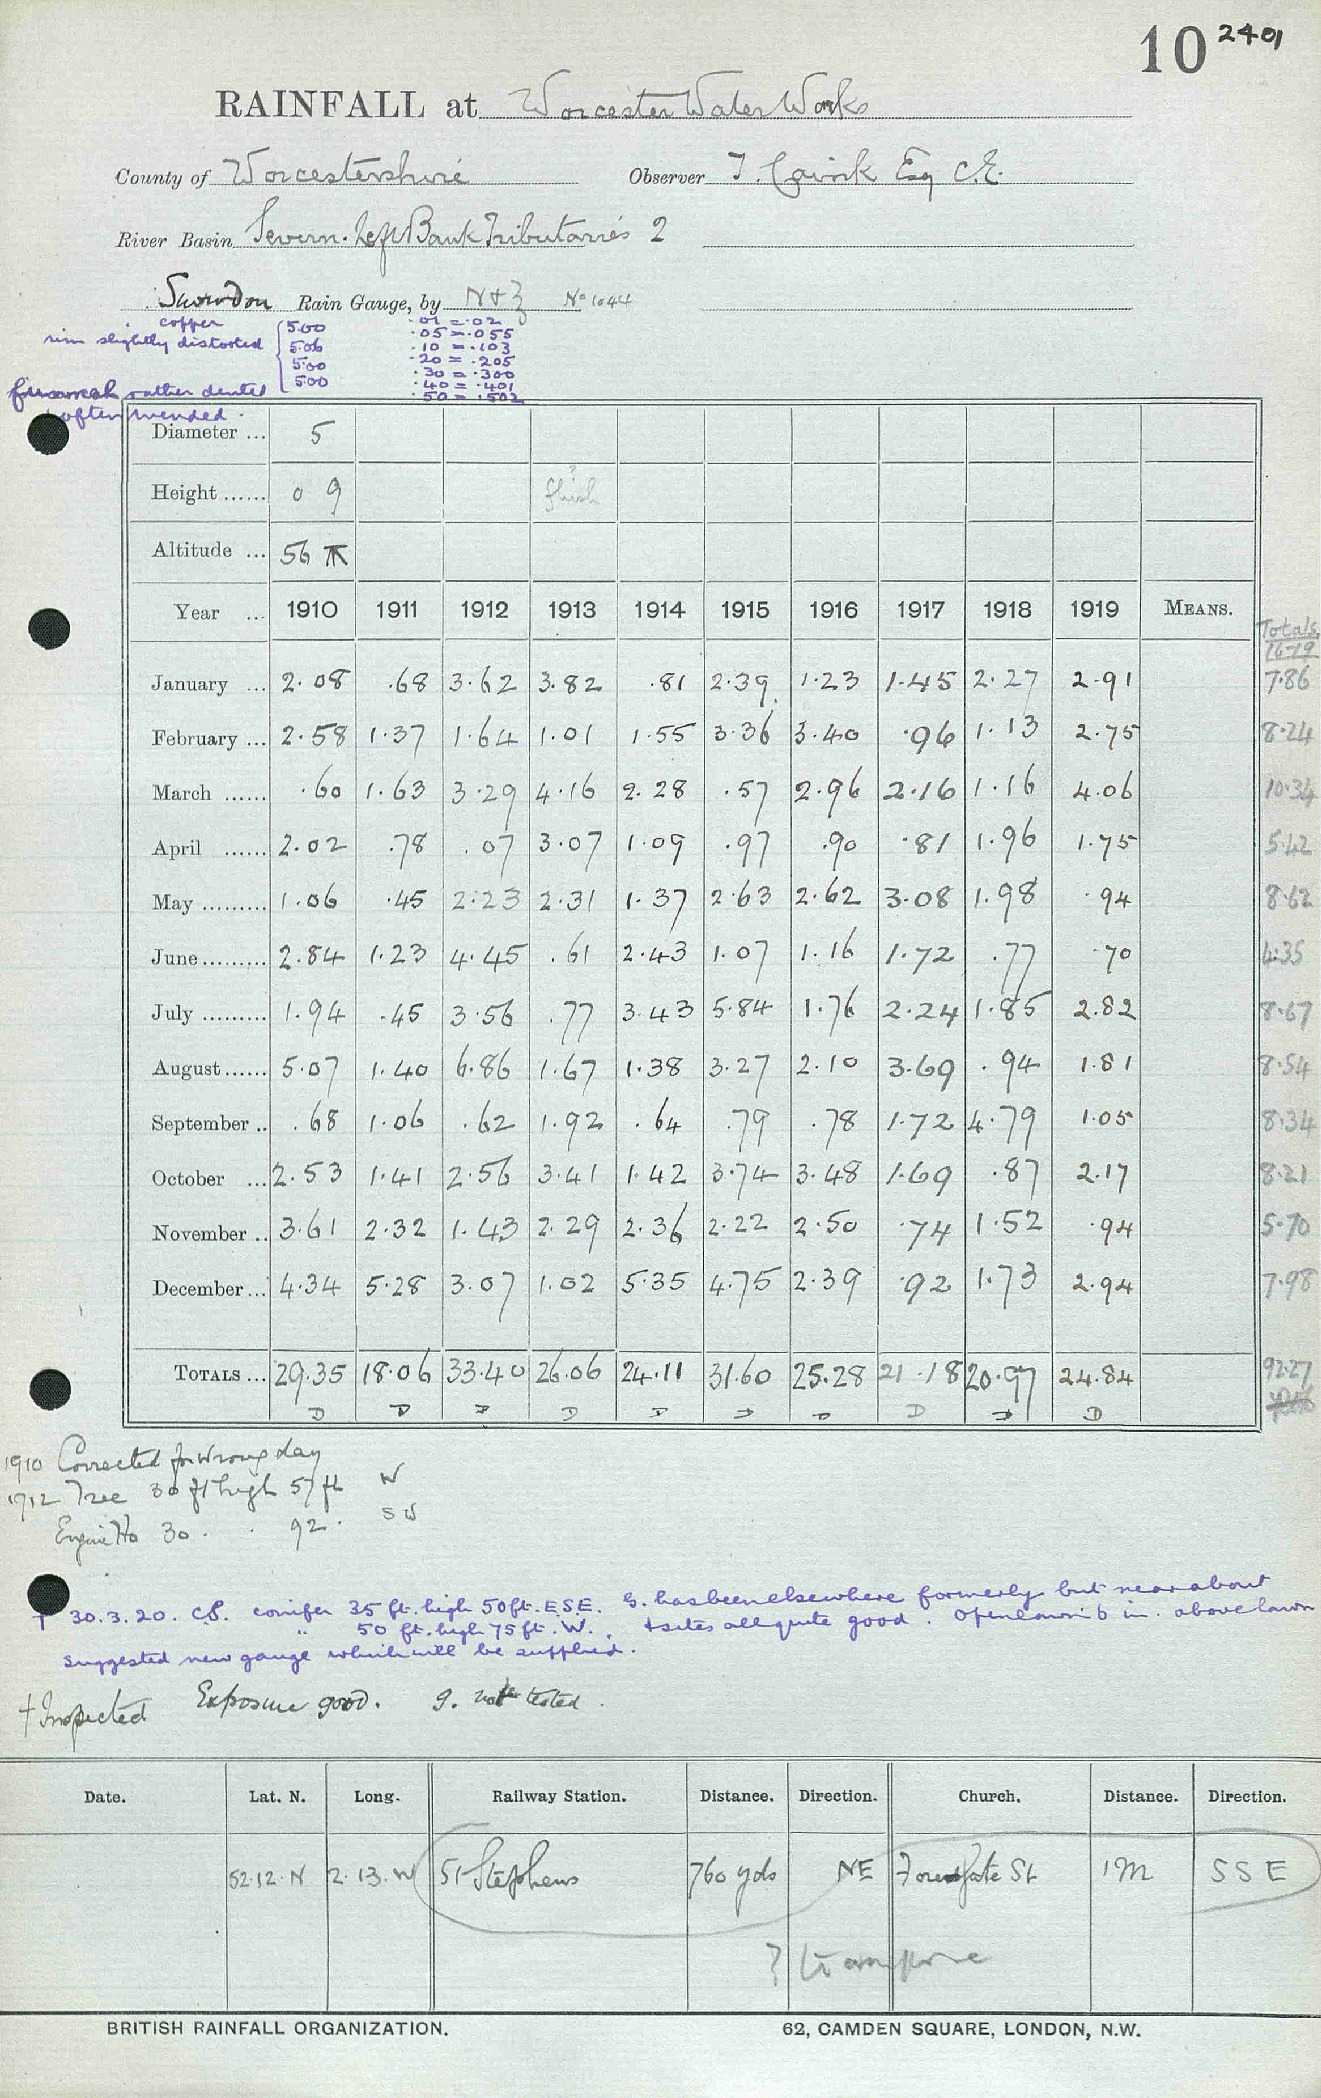 10 2401
RAINFALL at Worcester Water Works
County of Worcestershire Observer T. Esq C.E.
River Basin Severn. Left Bank Tributaries 2
Snowdon Rain Gauge, by N & Z No 1044
copper
rim slightly distorted
5.00 .01 = .02
5.06 .05 = .055
5.00 .10 = .103
5.00 .20 = .205
.30 = .300
.40 = .401
.50 = .502
rather dented
& often mended.
Diameter ... 5
Height ...... 0 9 flush
Altitude ... 56
Year ... 1910 1911 1912 1913 1914 1915 1916 1917 1918 1919 MEANS. Totals 16-19
January ... 2.08 .68 3.62 3.82 .81 2.39 1.23 1.45 2.27 2.91 7.86
February ... 2.58 1.37 1.64 1.01 1.55 3.36 3.40 .96 1.13 2.75 8.24
March ...... .60 1.63 3.29 4.16 2.28 .57 2.96 2.16 1.16 4.06 10.34
April ...... 2.02 .78 .07 3.07 1.09 .97 .90 .81 1.96 1.75 5.42
May ......... 1.06 .45 2.23 2.31 1.37 2.63 2.62 3.08 1.98 .94 8.62
June ......... 2.84 1.23 4.45 .61 2.43 1.07 1.16 1.72 .77 .70 4.35
July ......... 1.94 .45 3.56 .77 3.43 5.84 1.76 2.24 1.85 2.82 8.67
August ...... 5.07 1.40 6.86 1.67 1.38 3.27 2.10 3.69 .94 1.81 8.54
September .. .68 1.06 .62 1.92 .64 .79 .78 1.72 4.79 1.05 8.34
October ... 2.53 1.41 2.56 3.41 1.42 3.74 3.48 1.69 .87 2.17 8.21
November .. 3.61 2.32 1.43 2.29 2.36 2.22 2.50 .74 1.52 .94 5.70
December ... 4.34 5.28 3.07 1.02 5.35 4.75 2.39 .92 1.73 2.94 7.98
TOTALS ... 29.35 18.06 33.40 26.06 24.11 31.60 25.28 21.18 20.97 24.84 92.27
D D D D D D D D D D
1910 Corrected for wrong day
1912 Tree 30 ft high 57 ft W
Engine Ho 30 . . 92 . SW
† 30.3.20. C.S. conifer 35 ft. high 50 ft. E.S.E. G. has been elsewhere formerly but near about
" 50 ft. high 75 ft. W. & sites all quite good. Open lawn 6 in. above lawn
suggested new gauge which will be supplied.
† Inspected Exposure good. g. not tested.
Date. Lat. N. Long. Railway Station. Distance. Direction. Church. Distance. Direction.
52.12.N 2.13.W St Stephens 760 yds NE Foregate St 1 M SSE
? transpose
BRITISH RAINFALL ORGANIZATION. 62, CAMDEN SQUARE, LONDON, N.W.